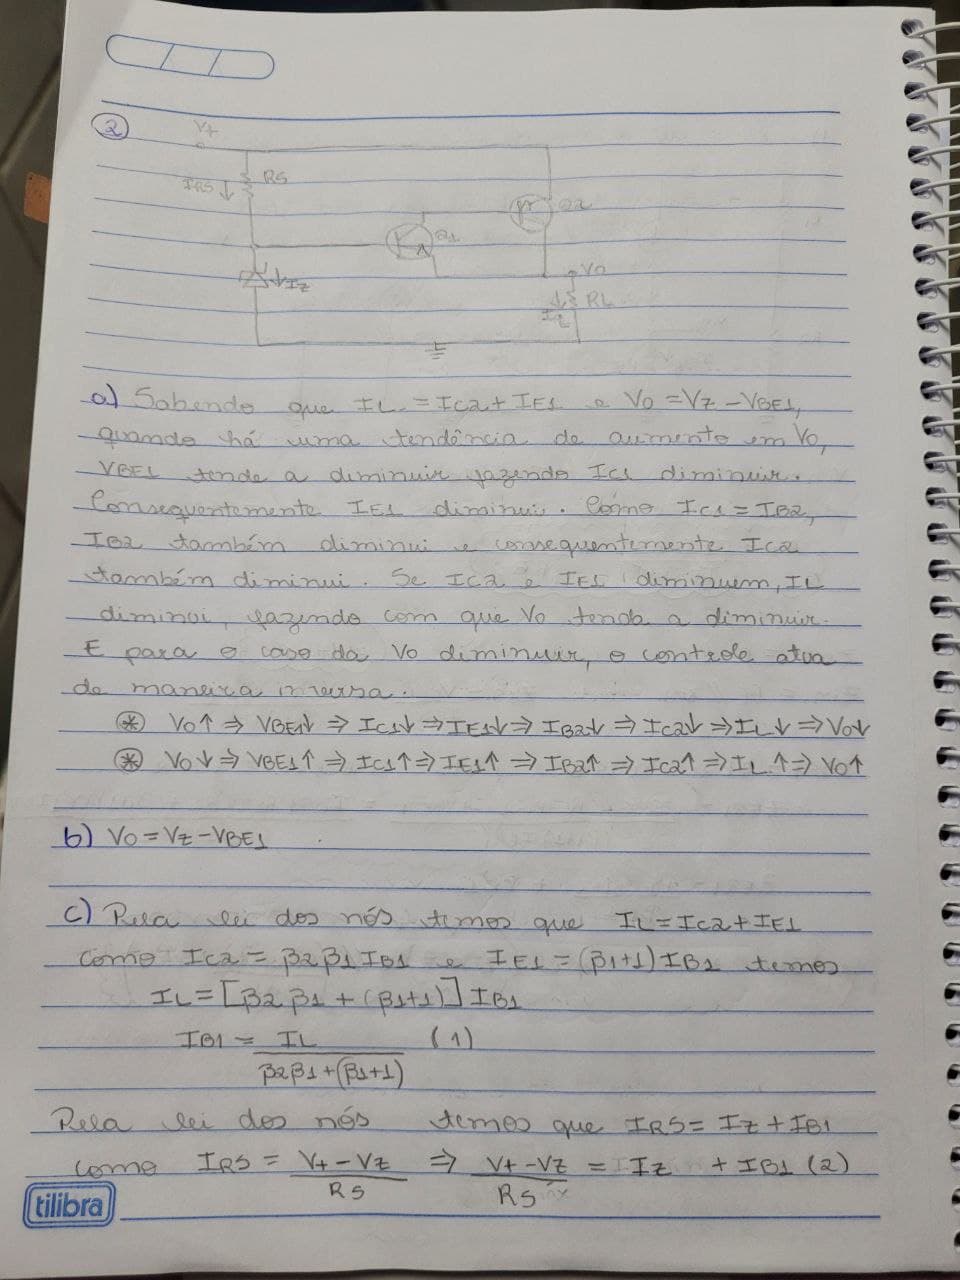 2
V+
IRS ↓ RS
Q2
Q1
↓IZ
VO
↓ RL
IL
a) Sabendo que IL = IC2 + IE1 e VO = VZ - VBE1,
quando há uma tendência de aumento em VO,
VBE1 tende a diminuir fazendo IC1 diminuir.
Consequentemente IE1 diminui. Como IC1 = IB2,
IB2 também diminui e consequentemente IC2
também diminui. Se IC2 e IE1 diminuem, IL
diminui, fazendo com que VO tenda a diminuir.
E para o caso da VO diminuir, o controle atua
de maneira inversa.
* VO↑ ⇒ VBE1↓ ⇒ IC1↓ ⇒ IE1↓ ⇒ IB2↓ ⇒ IC2↓ ⇒ IL↓ ⇒ VO↓
* VO↓ ⇒ VBE1↑ ⇒ IC1↑ ⇒ IE1↑ ⇒ IB2↑ ⇒ IC2↑ ⇒ IL↑ ⇒ VO↑
b) VO = VZ - VBE1
c) Pela lei dos nós temos que IL = IC2 + IE1
como IC2 = β2 β1 IB1 e IE1 = (β1+1) IB1 temos
IL = [β2 β1 + (β1+1)] IB1
IB1 = IL / β2β1 + (β1+1) (1)
Pela lei dos nós temos que IRS = IZ + IB1
como IRS = V+ - VZ / RS ⇒ V+ - VZ / RS = IZ + IB1 (2)
tilibra